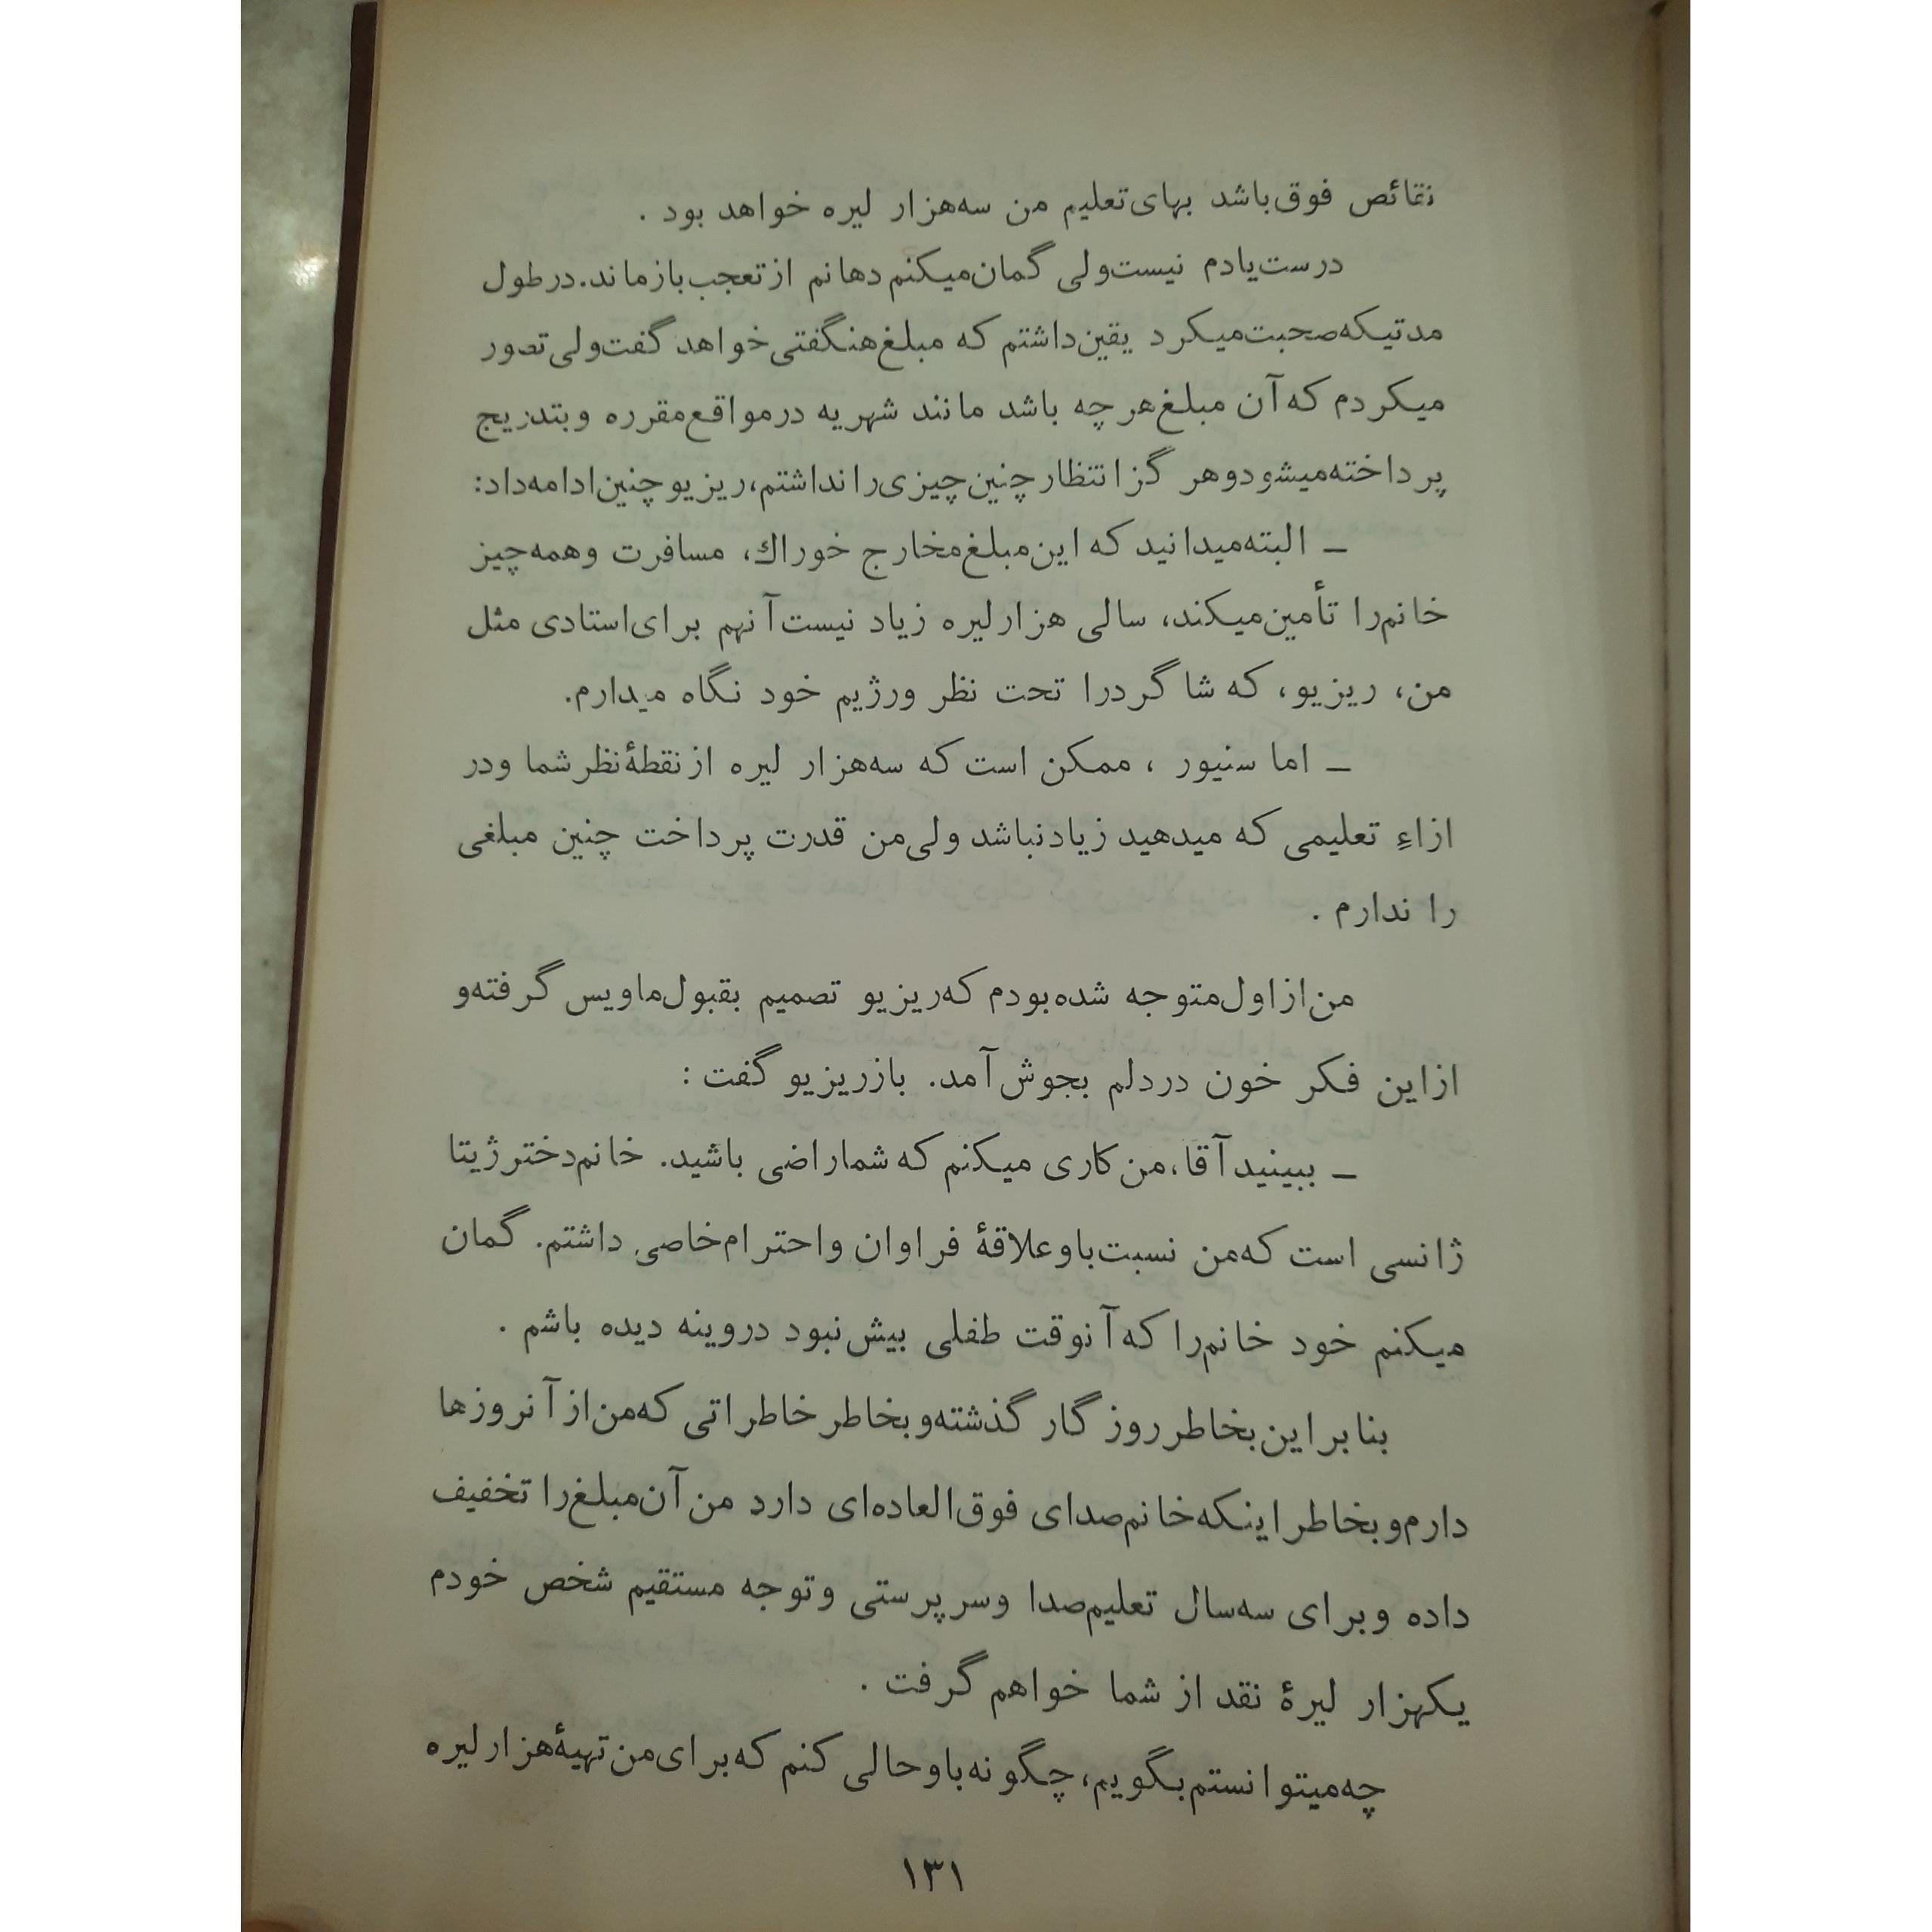 نقائص فوق باشد بهای تعلیم من سه هزار لیره خواهد بود .
درست یادم نیست ولی گمان میکنم دهانم از تعجب باز ماند. در طول
مدتیکه صحبت میکرد یقین داشتم که مبلغ هنگفتی خواهد گفت ولی تصور
میکردم که آن مبلغ هر چه باشد مانند شهریه در مواقع مقرره و بتدریج
پرداخته میشود و هرگز انتظار چنین چیزی را نداشتم، ریزیو چنین ادامه داد:
ـ البته میدانید که این مبلغ مخارج خوراك، مسافرت و همه چیز
خانم را تأمین میکند، سالی هزار لیره زیاد نیست آنهم برای استادی مثل
من، ریزیو، که شاگرد را تحت نظر ورژیم خود نگاه میدارم.
ـ اما سنیور ، ممکن است که سه هزار لیره از نقطهٔ نظر شما و در
ازاءِ تعلیمی که میدهید زیاد نباشد ولی من قدرت پرداخت چنین مبلغی
را ندارم .
من از اول متوجه شده بودم که ریزیو تصمیم بقبول ماویس گرفته و
از این فکر خون در دلم بجوش آمد. باز ریزیو گفت :
ـ ببینید آقا، من کاری میکنم که شما راضی باشید. خانم دختر ژیتا
ژانسی است که من نسبت باو علاقهٔ فراوان و احترام خاصی داشتم. گمان
میکنم خود خانم را که آنوقت طفلی بیش نبود در وینه دیده باشم .
بنابراین بخاطر روزگار گذشته و بخاطر خاطراتی که من از آنروزها
دارم و بخاطر اینکه خانم صدای فوق العاده ای دارد من آن مبلغ را تخفیف
داده و برای سه سال تعلیم صدا و سرپرستی و توجه مستقیم شخص خودم
یکهزار لیرهٔ نقد از شما خواهم گرفت .
چه میتوانستم بگویم، چگونه باو حالی کنم که برای من تهیهٔ هزار لیره
۱۳۱